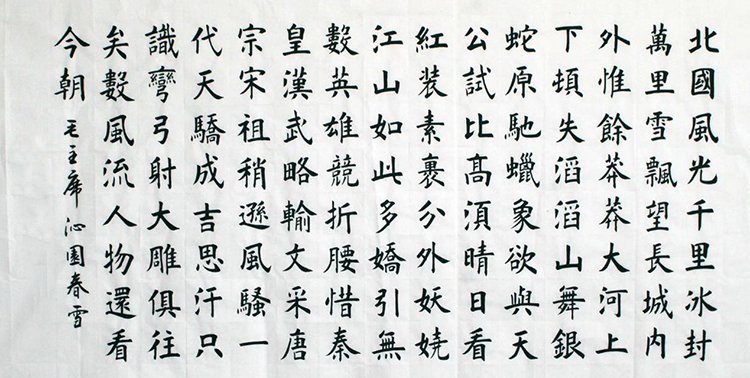 北國風光千里冰封
萬里雪飄望長城內
外惟餘莽莽大河上
下頓失滔滔山舞銀
蛇原馳蠟象欲與天
公試比高須晴日看
紅装素裹分外妖嬈
江山如此多嬌引無
數英雄競折腰惜秦
皇漢武略輸文采唐
宗宋祖稍遜風騷一
代天驕成吉思汗只
識彎弓射大雕俱往
矣數風流人物還看
今朝 毛主席沁園春雪